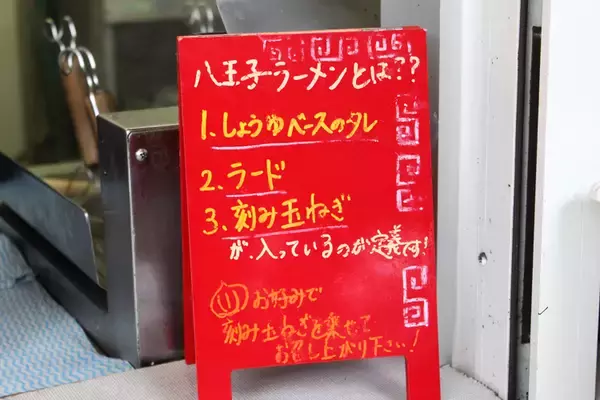 八王子ラーメンとは??
1.しょうゆベースのタレ
2.ラード
3.刻み玉ねぎ
が、入っているのが定義です!
お好みで
刻み玉ねぎを乗せて
お召し上がり下さい!